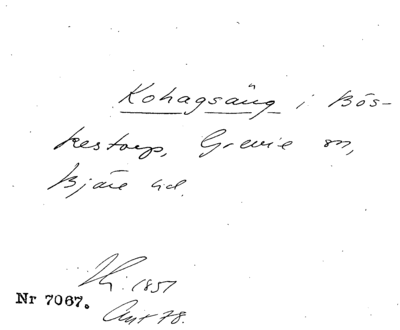 Kohagsäng i Bös-
kestorp, Grevie sn,
Bjäre hd.
1851
Nr 7067.
Ant 78.